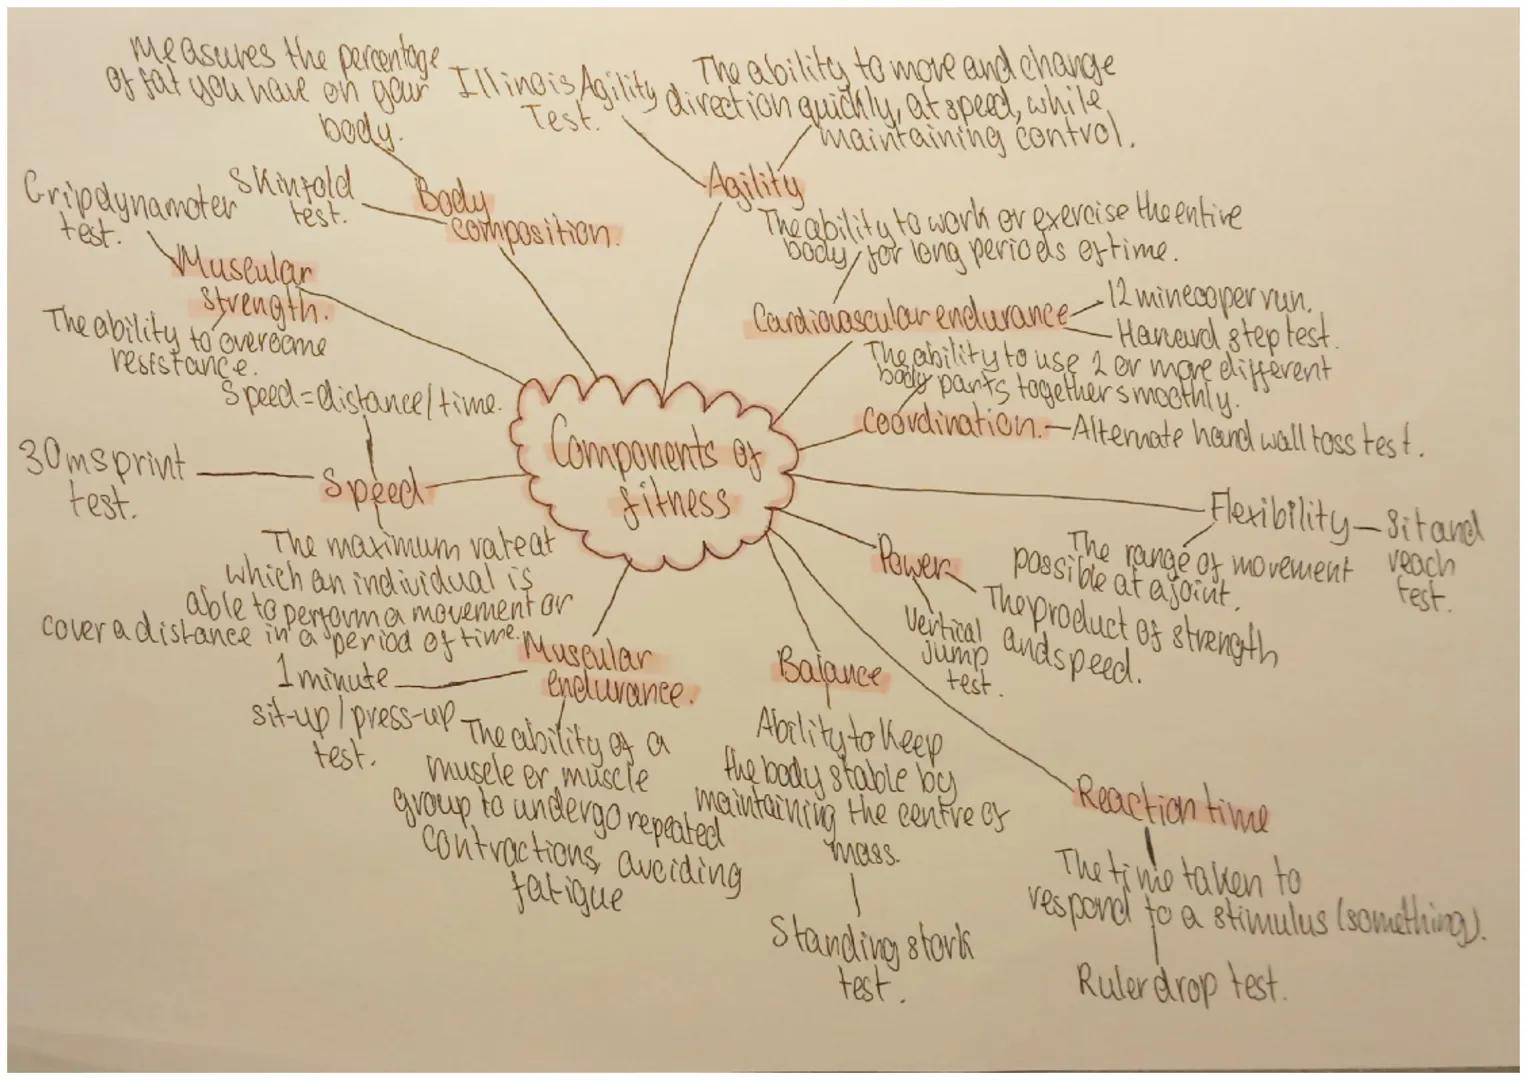 Measures the percentage
of fat you have on your
body.
Skinfold
test.
Body
composition.
Illinois Agility
Test.
The ability to move and change
direction quickly, at speed, while
maintaining control.
Agility
Gripdynamoter
test.
Muscular
strength.
The ability to overcome
resistance.
The ability to work or exercise the entire
body for long periods of time.
Cardiovascular endurance
12 min cooper run.
Harvard step test.
The ability to use 2 or more different
body parts together smoothly.
Coordination.
Alternate hand wall toss test.
Speed=distance/time.
30m sprint
test.
Speed
The maximum rate at
which an individual is
able to perform a movement or
cover a distance in a period of time.
Components of
fitness
Flexibility
Sit and
reach
test.
The range of movement
possible at a joint.
Power
Vertical
jump
test.
The product of strength
and speed.
Muscular
endurance.
1 minute
sit-up/press-up
test.
The ability of a
muscle or muscle
group to undergo repeated
contractions, avoiding
fatigue
Balance
Ability to keep
the body stable by
maintaining the centre of
mass.
Standing stork
test.
Reaction time
The time taken to
respond to a stimulus (something).
Ruler drop test.